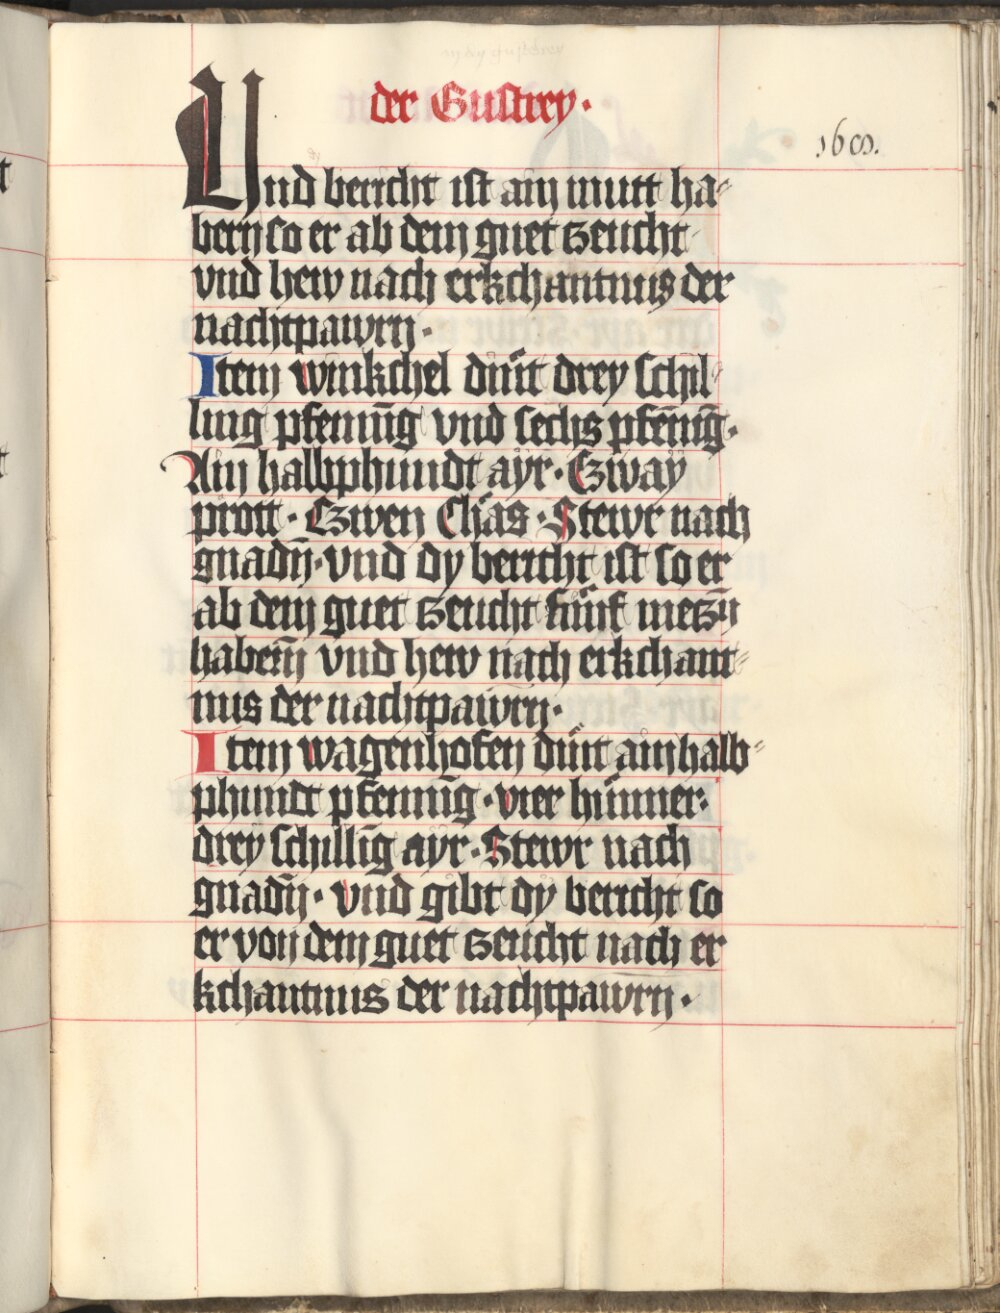 der Gustrey.
Und bericht ist ain mutt ha-
bern so er ab dem guet geucht
vnd hew nach erkchantnus der
nachtpawrn.
Item winkchel dint drey schil
ling pfennīg vnd sechs pfēnīg.
Ain halbphundt ayr. Czway
prott. Czwen Chäs. Stewr nach
gnadn̄. vnd dy bericht ist so er
ab dem guet geucht fünf meczn̄
habern̄ vnd hew nach erkchant-
nus der nachtpawrn̄.
Item wagenhofen dint ain halb-
phundt pfenning. vier hünner.
drey schillīg ayr. Stewr nach
gnadn̄. vnd gibt dy bericht so
er von dem guet geucht nach er
kchantnus der nachtpawrn.